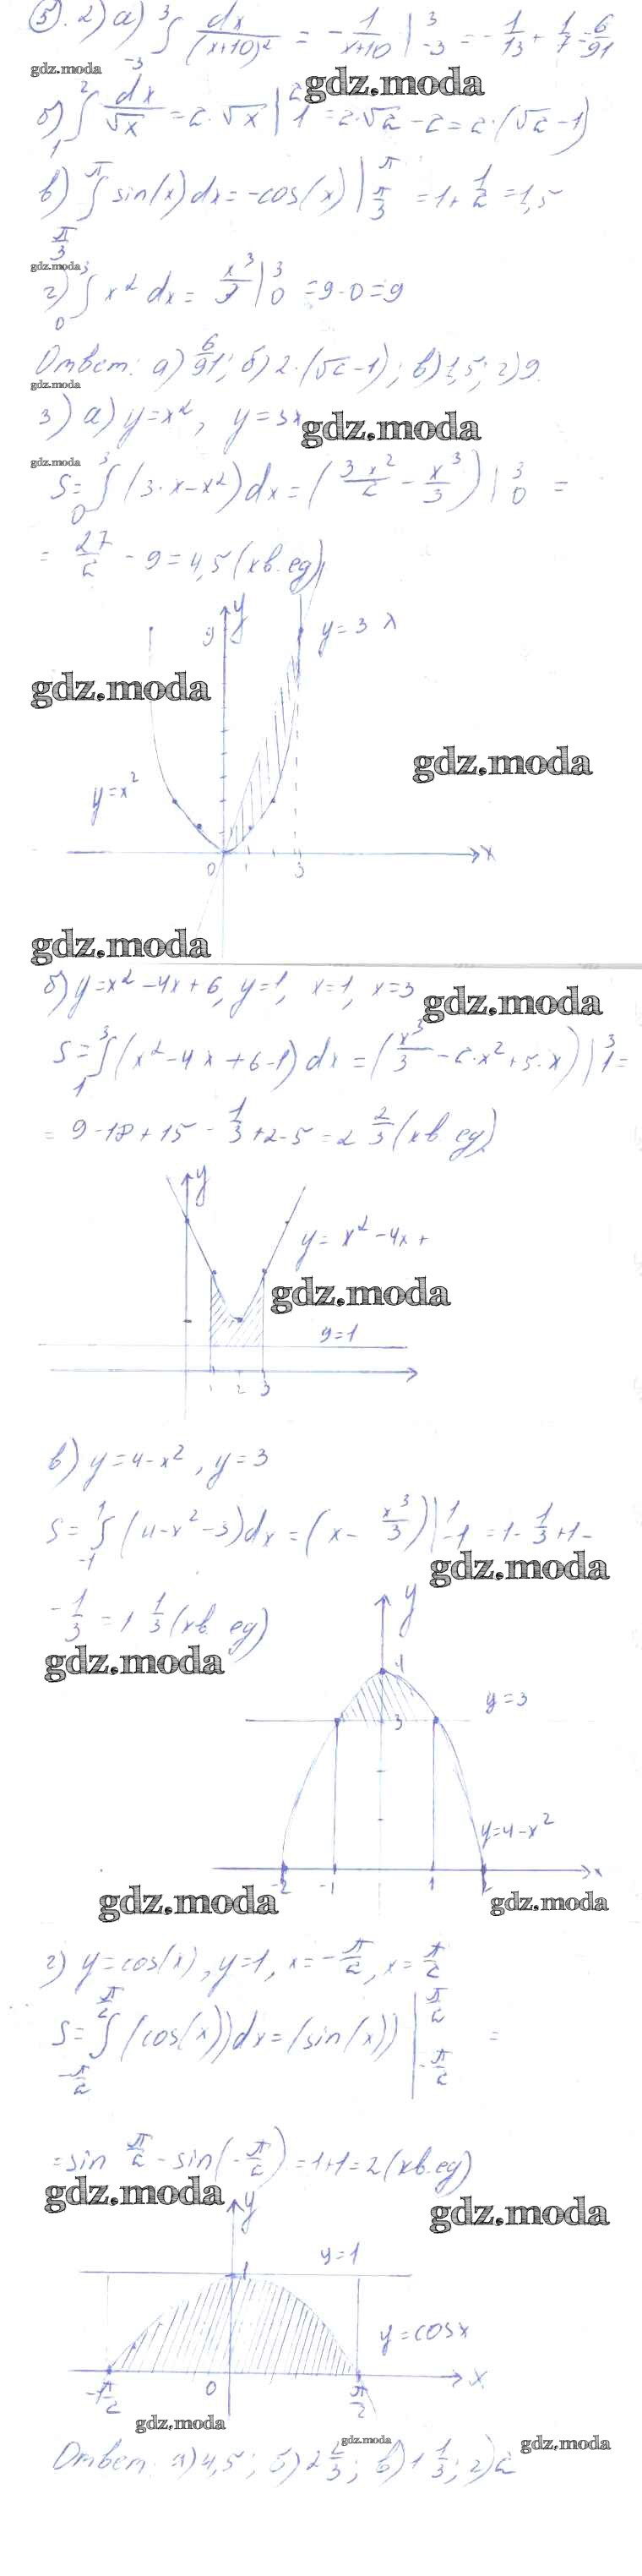 5). 2) а) ∫_{-3}^{3} dx/(x+10)² = -1/(x+10) |_{-3}^{3} = -1/13 + 1/7 = 6/91
gdz.moda
gdz.moda
б) ∫_{1}^{2} dx/√x = 2·√x |_{1}^{2} = 2·√2 - 2 = 2·(√2-1)
в) ∫_{π/3}^{π} sin(x)dx = -cos(x) |_{π/3}^{π} = 1+1/2 = 1,5
gdz.moda
г) ∫_{0}^{3} x² dx = x³/3 |_{0}^{3} = 9-0 = 9
Ответ: а) 6/91; б) 2·(√2-1); в) 1,5; г) 9.
gdz.moda
3) а) y=x², y=3x
gdz.moda
gdz.moda
S = ∫_{0}^{3} (3·x-x²)dx = (3x²/2 - x³/3) |_{0}^{3} =
= 27/2 - 9 = 4,5 (кв.ед)
y
9
y=3x
gdz.moda
gdz.moda
y=x²
0 1 3 x
gdz.moda
б) y=x²-4x+6, y=1, x=1, x=3
gdz.moda
S = ∫_{1}^{3} (x²-4x+6-1)dx = (x³/3 - 2·x²+5·x) |_{1}^{3} =
= 9-18+15 - 1/3 +2-5 = 2 2/3 (кв.ед)
y
y = x²-4x+
gdz.moda
y=1
1 2 3
в) y=4-x², y=3
S = ∫_{-1}^{1} (4-x²-3)dx = (x - x³/3) |_{-1}^{1} = 1 - 1/3 + 1 -
gdz.moda
- 1/3 = 1 1/3 (кв.ед)
gdz.moda
y
4
y=3
3
y=4-x²
-2 -1 1 2 x
gdz.moda
gdz.moda
г) y=cos(x), y=1, x=-π/2, x=π/2
S = ∫_{-π/2}^{π/2} (cos(x))dx = (sin(x)) |_{-π/2}^{π/2} =
= sin π/2 - sin(-π/2) = 1+1 = 2 (кв.ед)
gdz.moda
gdz.moda
y
y=1
1
y=cosx
-π/2 0 π/2 x
gdz.moda
gdz.moda
gdz.moda
Ответ: а) 4,5; б) 2 2/3; в) 1 1/3; г) 2